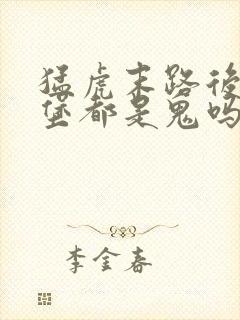 猛虎末路後
堡都是鬼吗
李金春